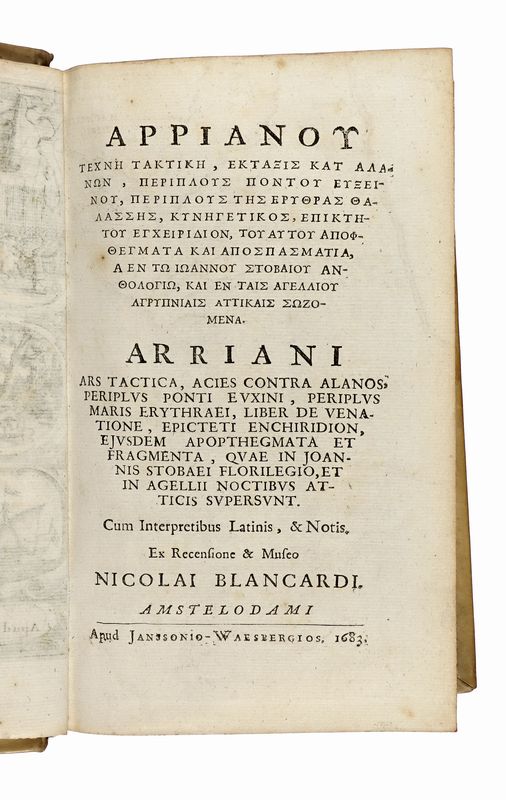 ΑΡΡΙΑΝΟΥ
ΤΕΧΝΗ ΤΑΚΤΙΚΗ, ΕΚΤΑΞΙΣ ΚΑΤ ΑΛΑ-
ΝΩΝ, ΠΕΡΙΠΛΟΥΣ ΠΟΝΤΟΥ ΕΥΞΕΙ-
ΝΟΥ, ΠΕΡΙΠΛΟΥΣ ΤΗΣ ΕΡΥΘΡΑΣ ΘΑ-
ΛΑΣΣΗΣ, ΚΥΝΗΓΕΤΙΚΟΣ, ΕΠΙΚΤΗ-
ΤΟΥ ΕΓΧΕΙΡΙΔΙΟΝ, ΤΟΥ ΑΥΤΟΥ ΑΠΟΦ-
ΘΕΓΜΑΤΑ ΚΑΙ ΑΠΟΣΠΑΣΜΑΤΙΑ,
Α ΕΝ ΤΩ ΙΩΑΝΝΟΥ ΣΤΟΒΑΙΟΥ ΑΝ-
ΘΟΛΟΓΙΩ, ΚΑΙ ΕΝ ΤΑΙΣ ΑΓΕΛΛΙΟΥ
ΑΓΡΥΠΝΙΑΙΣ ΑΤΤΙΚΑΙΣ ΣΩΖΟ-
ΜΕΝΑ.
ARRIANI
ARS TACTICA, ACIES CONTRA ALANOS,
PERIPLVS PONTI EVXINI, PERIPLVS
MARIS ERYTHRAEI, LIBER DE VENA-
TIONE, EPICTETI ENCHIRIDION,
EJVSDEM APOPTHEGMATA ET
FRAGMENTA, QVAE IN JOAN-
NIS STOBAEI FLORILEGIO, ET
IN AGELLII NOCTIBVS AT-
TICIS SVPERSVNT.
Cum Interpretibus Latinis, & Notis.
Ex Recensione & Museo
NICOLAI BLANCARDI.
AMSTELODAMI
Apud JANSSONIO-WAESBERGIOS, 1683.